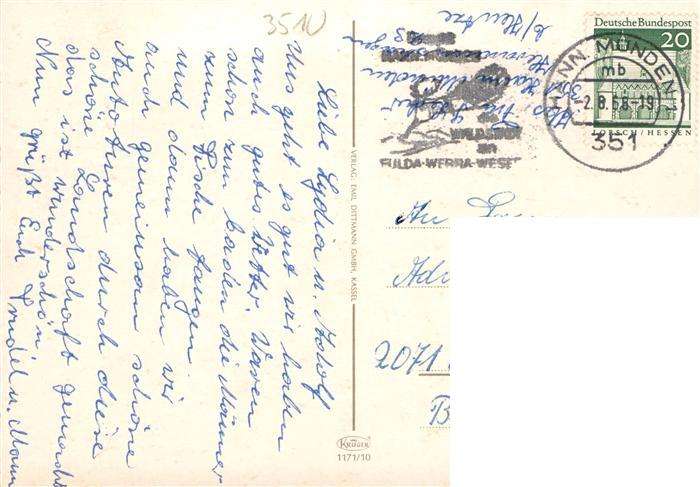 3510
Liebe Lydia u. Adolf
Uns geht es gut wir haben
auch gutes Wetter. Waren
schon zum baden die Männer
zum Fische fangen
und dann haben wir
auch gemeinsam schöne
Autotouren durch diese
schöne Landschaft gemacht
das ist wunderschön
Nun grüßt Euch
u. Mann
VERLAG: EMIL DITTMANN GMBH, KASSEL
KRÜGER
1171/10
Deutsche Bundespost
20
LORSCH/HESSEN
HANN. MÜNDEN
mb
-2.8.68-19
351
die
WALDSTADT
an
FULDA-WERRA-WESER
b/Hentze
An
2071
B